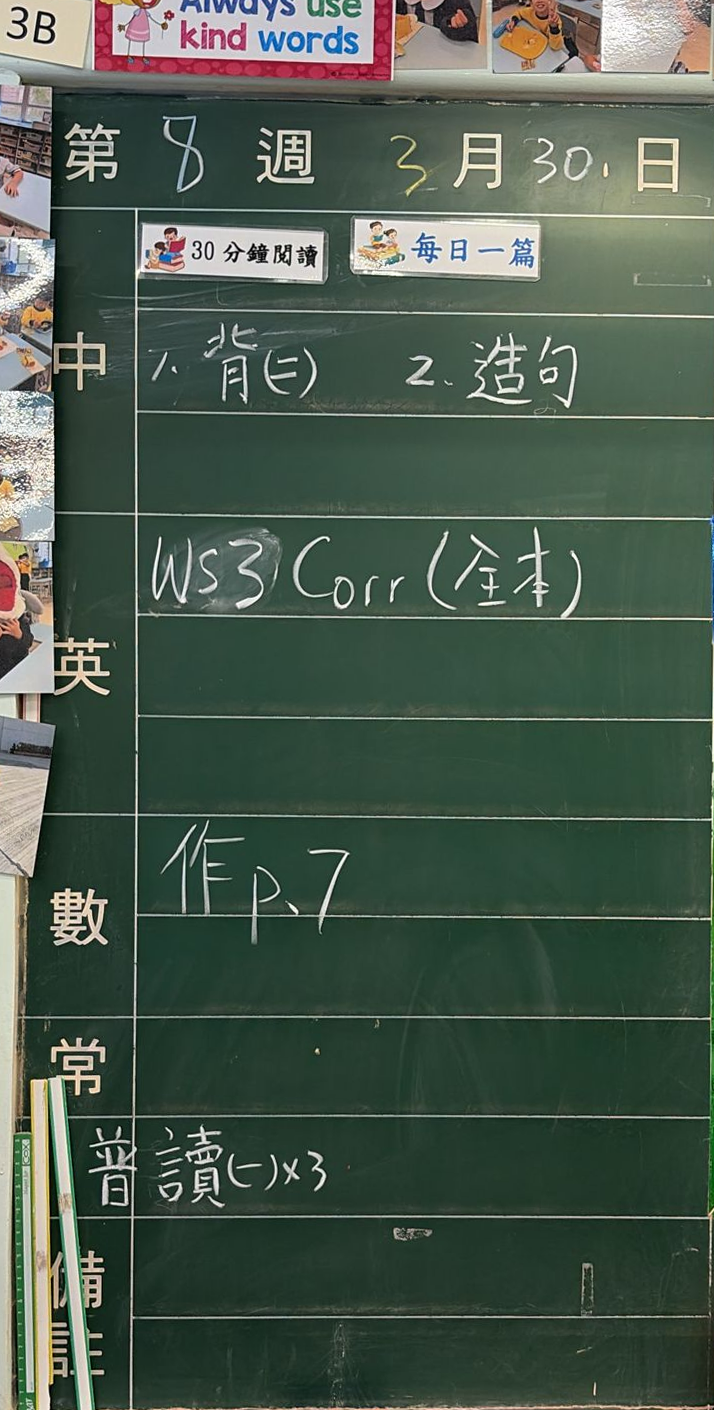 3B
Always use
kind words
第 8 週 3 月 30 日
30 分鐘閱讀 每日一篇
中 1. 背(二) 2. 造句
英 WS3 Corr (全本)
數 作 p.7
常
普 讀(一)x3
備註